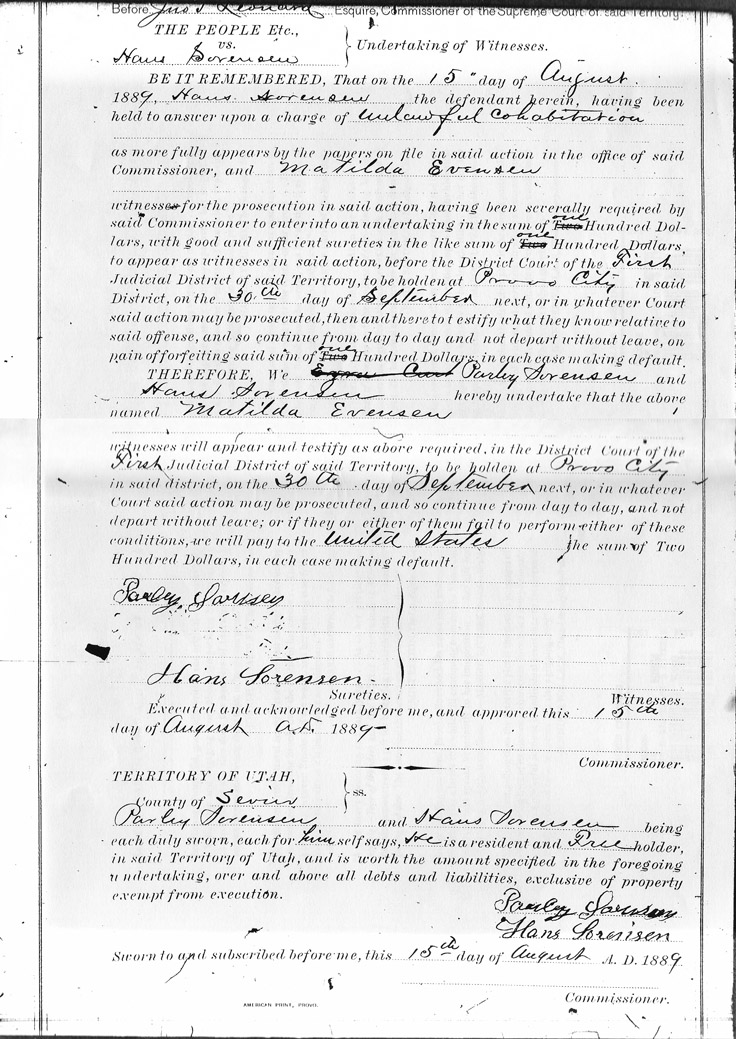 Before Jno. T. Leonard Esquire, Commissioner of the Supreme Court of said Territory.
THE PEOPLE Etc.,
vs.
Hans Sorensen
Undertaking of Witnesses.
BE IT REMEMBERED, That on the 15" day of August
1889, Hans Sorensen the defendant herein, having been
held to answer upon a charge of Unlawful Cohabitation
as more fully appears by the papers on file in said action in the office of said
Commissioner, and Matilda Evensen
witnesses for the prosecution in said action, having been severally required by
said Commissioner to enter into an undertaking in the sum of Two one Hundred Dol-
lars, with good and sufficient sureties in the like sum of Two one Hundred Dollars,
to appear as witnesses in said action, before the District Court of the First
Judicial District of said Territory, to be holden at Provo City in said
District, on the 30th day of September next, or in whatever Court
said action may be prosecuted, then and there to testify what they know relative to
said offense, and so continue from day to day and not depart without leave, on
pain of forfeiting said sum of Two one Hundred Dollars, in each case making default.
THEREFORE, We Parley Sorensen and
Hans Sorensen hereby undertake that the above
named Matilda Evensen
witnesses will appear and testify as above required, in the District Court of the
First Judicial District of said Territory, to be holden at Provo City
in said district, on the 30th day of September next, or in whatever
Court said action may be prosecuted, and so continue from day to day, and not
depart without leave; or if they or either of them fail to perform either of these
conditions, we will pay to the United States the sum of Two
Hundred Dollars, in each case making default.
Parley Sorensen
Hans Sorensen
Sureties.
Witnesses.
Executed and acknowledged before me, and approved this 15th
day of August A.D. 1889
Commissioner.
TERRITORY OF UTAH,
County of Sevier
ss.
Parley Sorensen and Hans Sorensen being
each duly sworn, each for himself says, He is a resident and Free holder,
in said Territory of Utah, and is worth the amount specified in the foregoing
undertaking, over and above all debts and liabilities, exclusive of property
exempt from execution.
Parley Sorensen
Hans Sorensen
Sworn to and subscribed before me, this 15th day of August A. D. 1889
Commissioner.
AMERICAN PRINT, PROVO.